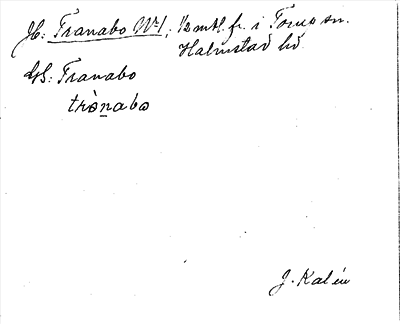 Jb: Tranabo No 1, 1/2 mtl. fr. i Torup sn.
Halmstad hd.
GS: Tranabo
trànabo
J. Kalén